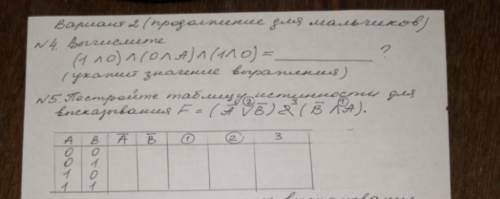 Вариант 2 (продолжение для мальчиков)
№4. Вычислите
(1 ∧ 0) ∧ (0 ∧ A) ∧ (1 ∧ 0) = ________ ?
(укажит значение выражения)
№5. Постройте таблицу истинности для
высказывания F = (A̅ ②∨ B̅) ³& (B̅ ①∧ A).
A B A̅ B̅ ① ② 3
0 0
0 1
1 0
1 1